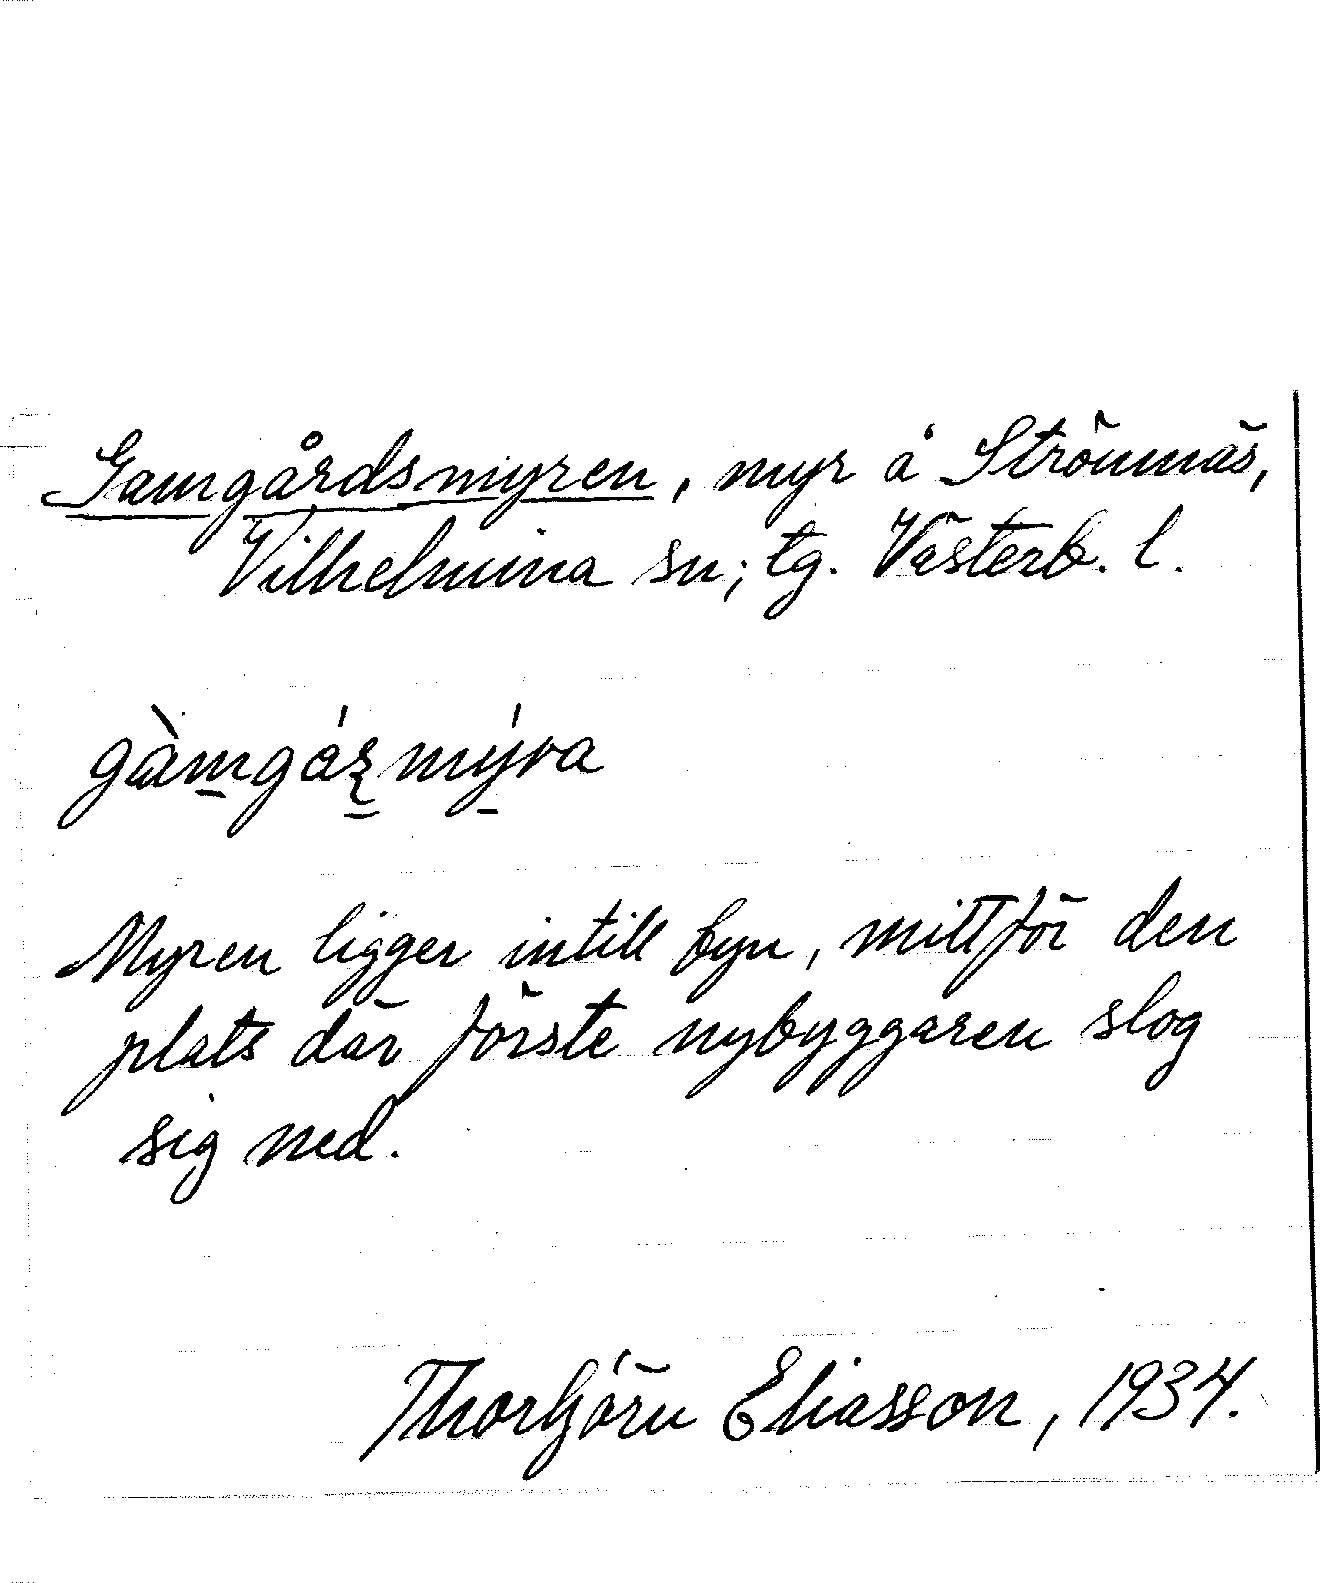 Gamgårdsmyren, myr å Strömnäs,
Vilhelmina sn; tg. Västerb. l.
Myren ligger intill byn, mittför den
plats där förste nybyggaren slog
sig ned.
Thorbjörn Eliasson, 1934.